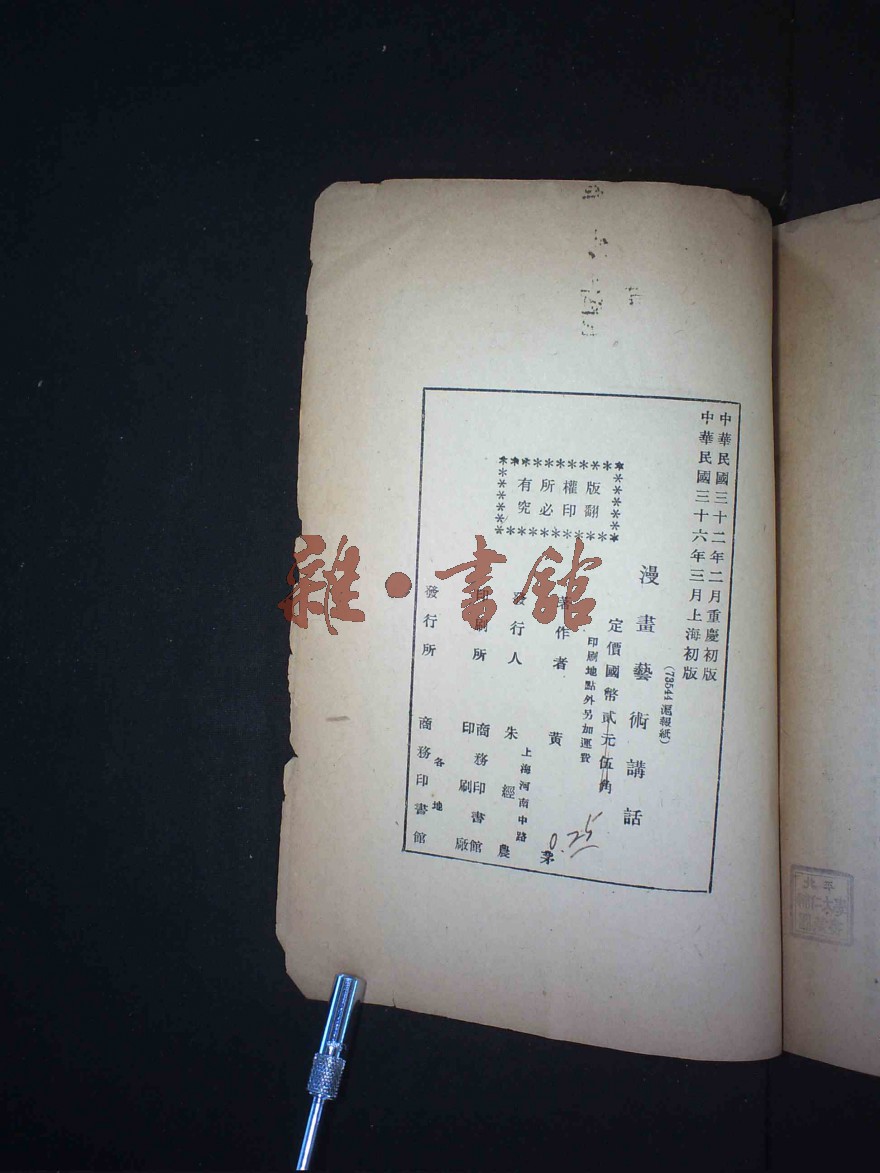 中華民國三十二年二月重慶初版
中華民國三十六年三月上海初版
(73544 滬報紙)
漫畫藝術講話
定價國幣貳元伍角
印刷地點外另加運費
版權所有
翻印必究
著作者 黃茅
發行人 朱經農
上海河南中路
印刷所 商務印書館
印刷廠
發行所 各地
商務印書館
雜·書館